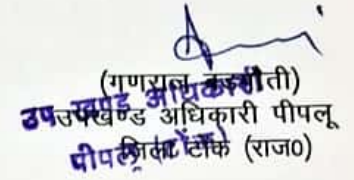 (गणराज
उपखण्ड अधिकारी पीपलू
जिला टोंक (राज0)
उप खण्ड अधिकारी
पीपलू (टोंक)